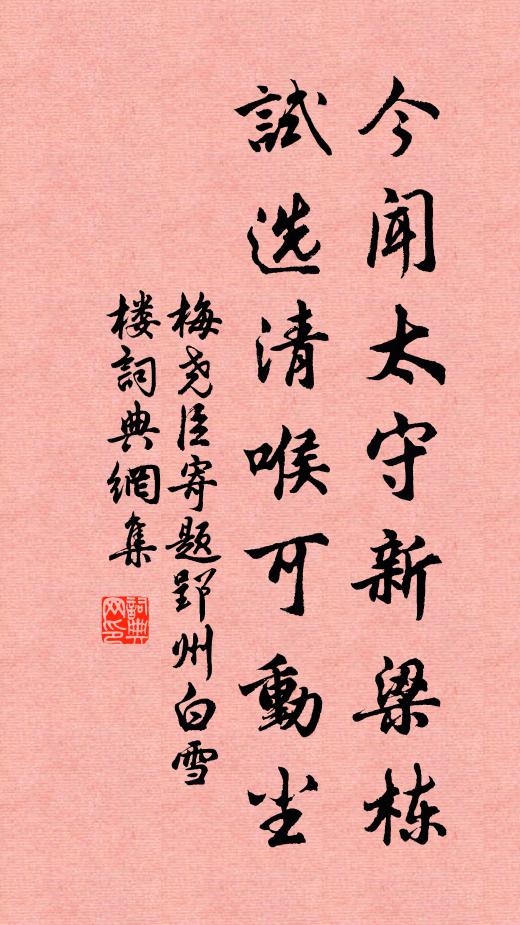 今闻太守新梁栋
試选清喉可動尘
梅尧臣寄题郢州白雪
楼詞典網集
詞典网印